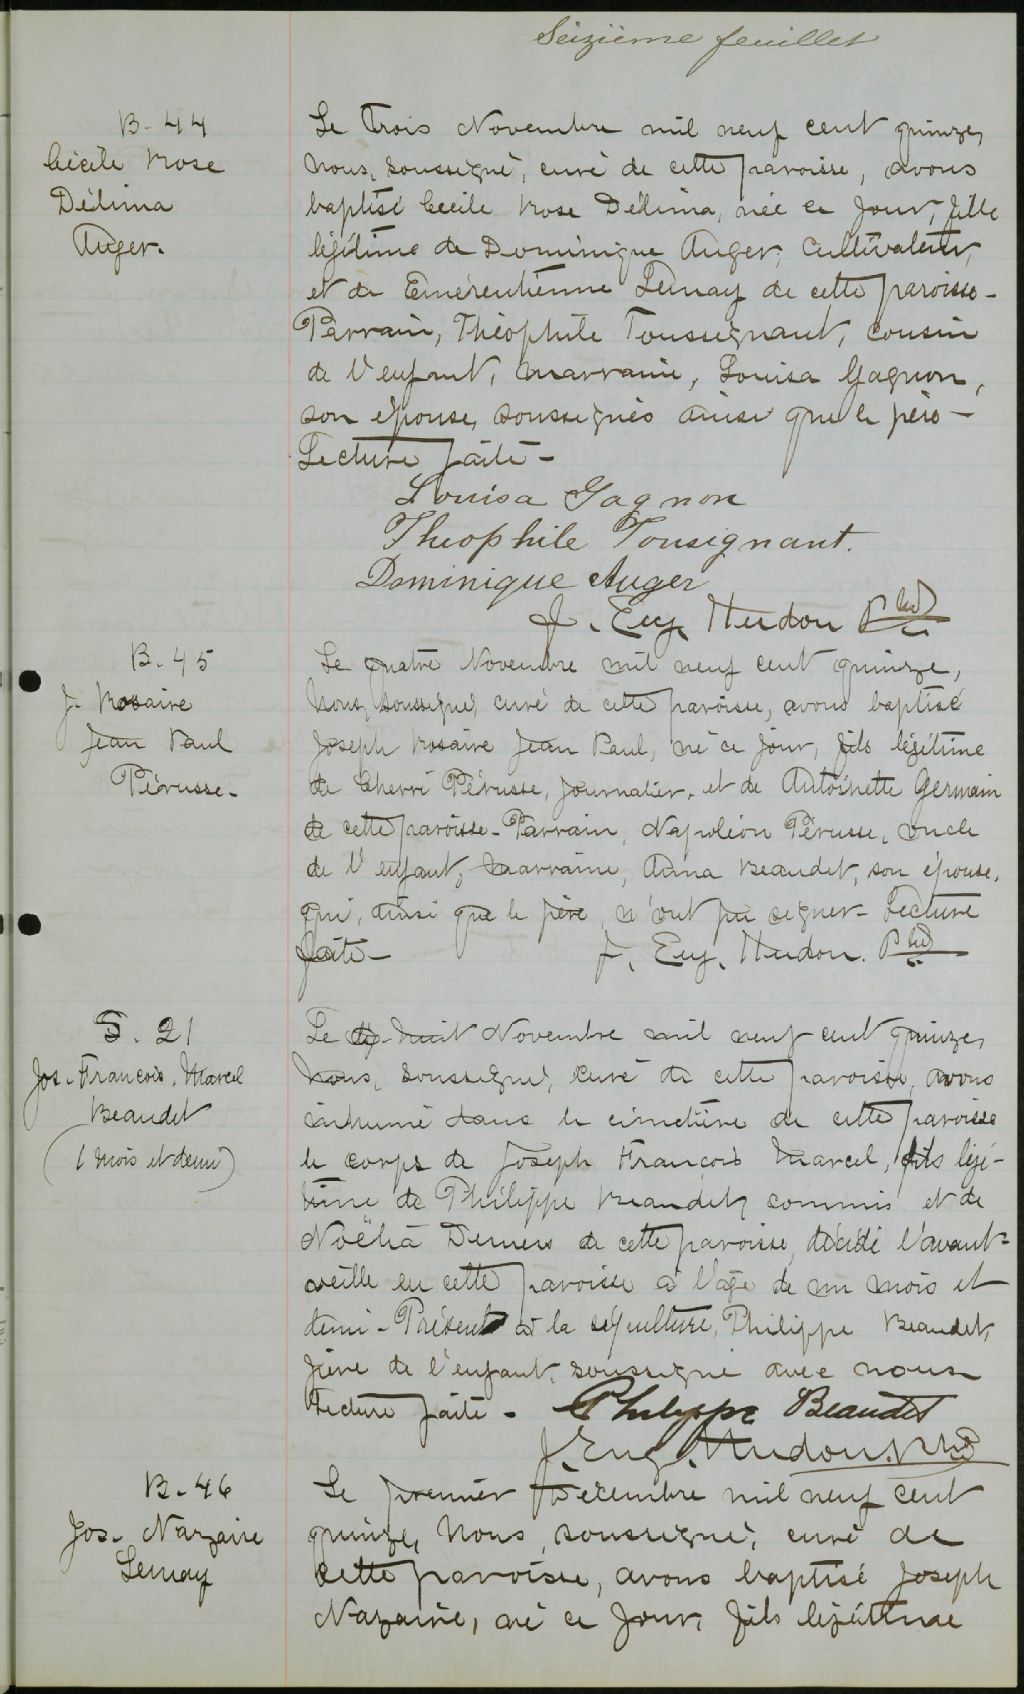 Seizième feuillet
B-44
Cécile Rose
Délima
Auger.
Le trois Novembre mil neuf cent quinze,
Nous, soussigné, curé de cette paroisse, avons
baptisé Cécile Rose Délima, née ce jour, fille
légitime de Dominique Auger, Cultivateur,
et de Emérentienne Lemay de cette paroisse-
Parrain, Théophile Toussignant, cousin
de l'enfant, marraine, Louisa Gagnon,
son épouse, soussignés ainsi que le père-
Lecture faite-
Louisa Gagnon
Theophile Tousignant.
Dominique Auger
J. Eug. Hudon Ptre
B. 45
J. Rosaire
Jean Paul
Pérusse-
Le quatre Novembre mil neuf cent quinze,
Nous, soussigné, curé de cette paroisse, avons baptisé
Joseph Rosaire Jean Paul, né ce jour, fils légitime
de Cherri Pérusse, journalier, et de Antoinette Germain
de cette paroisse-Parrain, Napoléon Pérusse, oncle
de l'enfant, marraine, Anna Beaudet, son épouse,
qui, ainsi que le père, n'ont pu signer- Lecture
faite- J. Eug. Hudon. Ptre
S. 21
Jos-François, Marcel
Beaudet
(1 mois et demi)
Le huit Novembre mil neuf cent quinze,
Nous, soussigné, curé de cette paroisse, avons
inhumé dans le cimetière de cette paroisse
le corps de Joseph François Marcel, fils légi-
time de Philippe Beaudet, commis et de
Noëlia Demers de cette paroisse, décédé l'avant-
veille en cette paroisse à l'âge de un mois et
demi-Présent à la sépulture, Philippe Beaudet,
père de l'enfant, soussigné avec nous-
Lecture faite- Philippe Beaudet
J. Eug. Hudon. Ptre
B-46
Jos- Nazaire
Lemay
Le premier Décembre mil neuf cent
quinze, Nous, soussigné, curé de
cette paroisse, avons baptisé Joseph
Nazaire, né ce jour, fils légitime